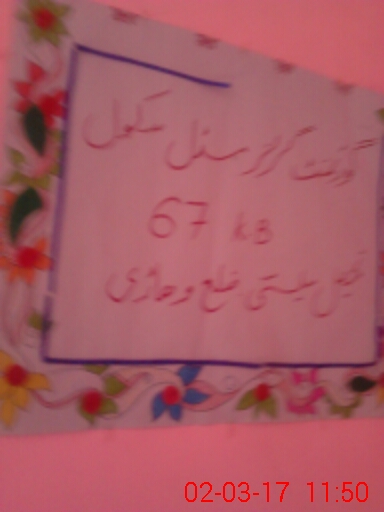 گورنمنٹ گرلز سکول
67 kB
تحصیل میلسی ضلع وہاڑی
02-03-17 11:50